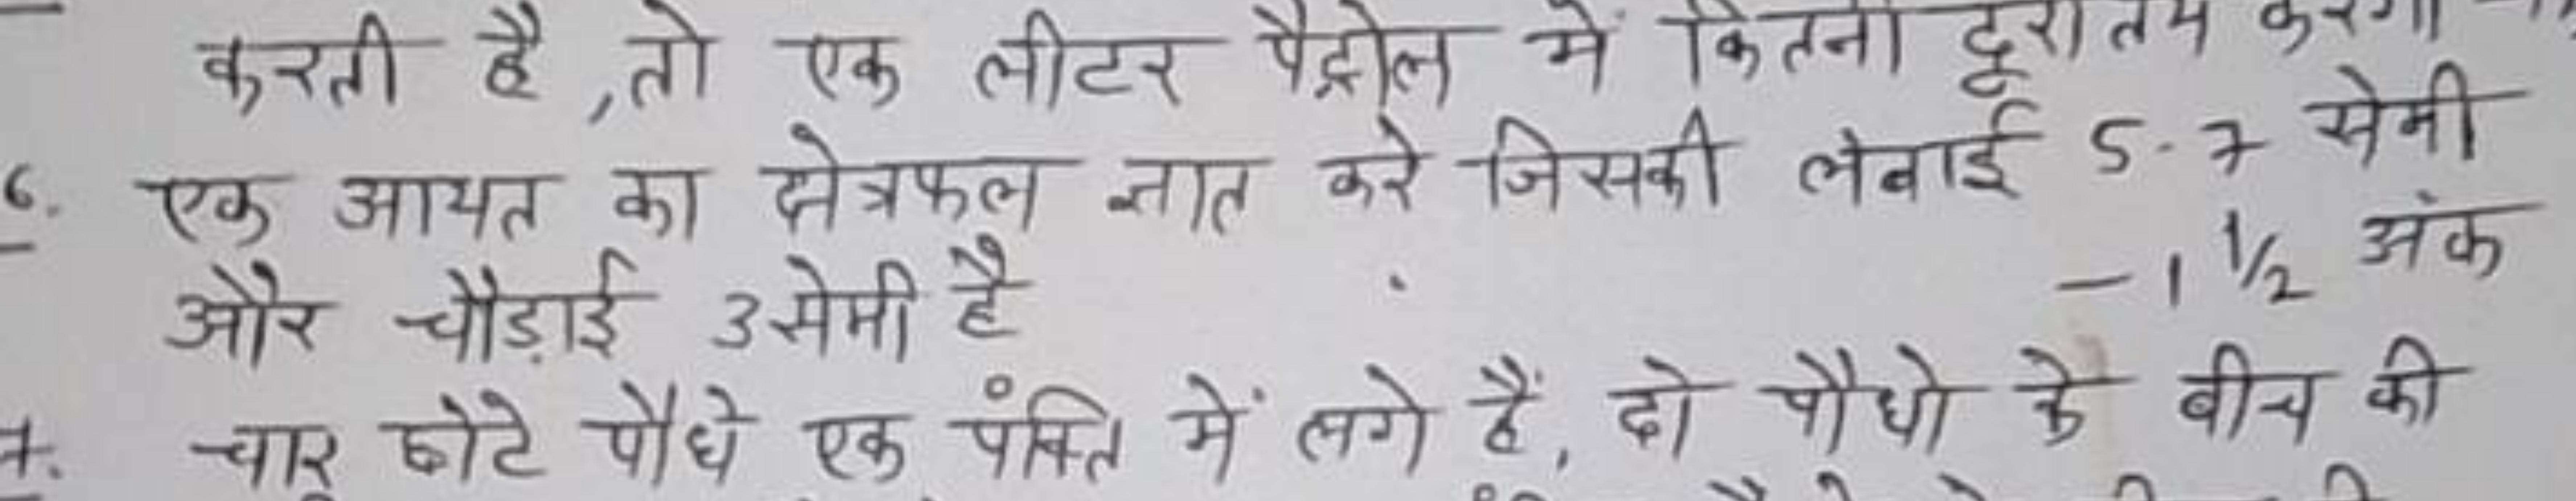 करती है, तो एक लीटर पैट्रोल में कितनी दूरी तय करेगी
6. एक आयत का क्षेत्रफल ज्ञात करे जिसकी लंबाई 5.7 सेमी
और चौड़ाई 3 सेमी है - 1 1/2 अंक
7. चार छोटे पौधे एक पंक्ति में लगे हैं, दो पौधो के बीच की